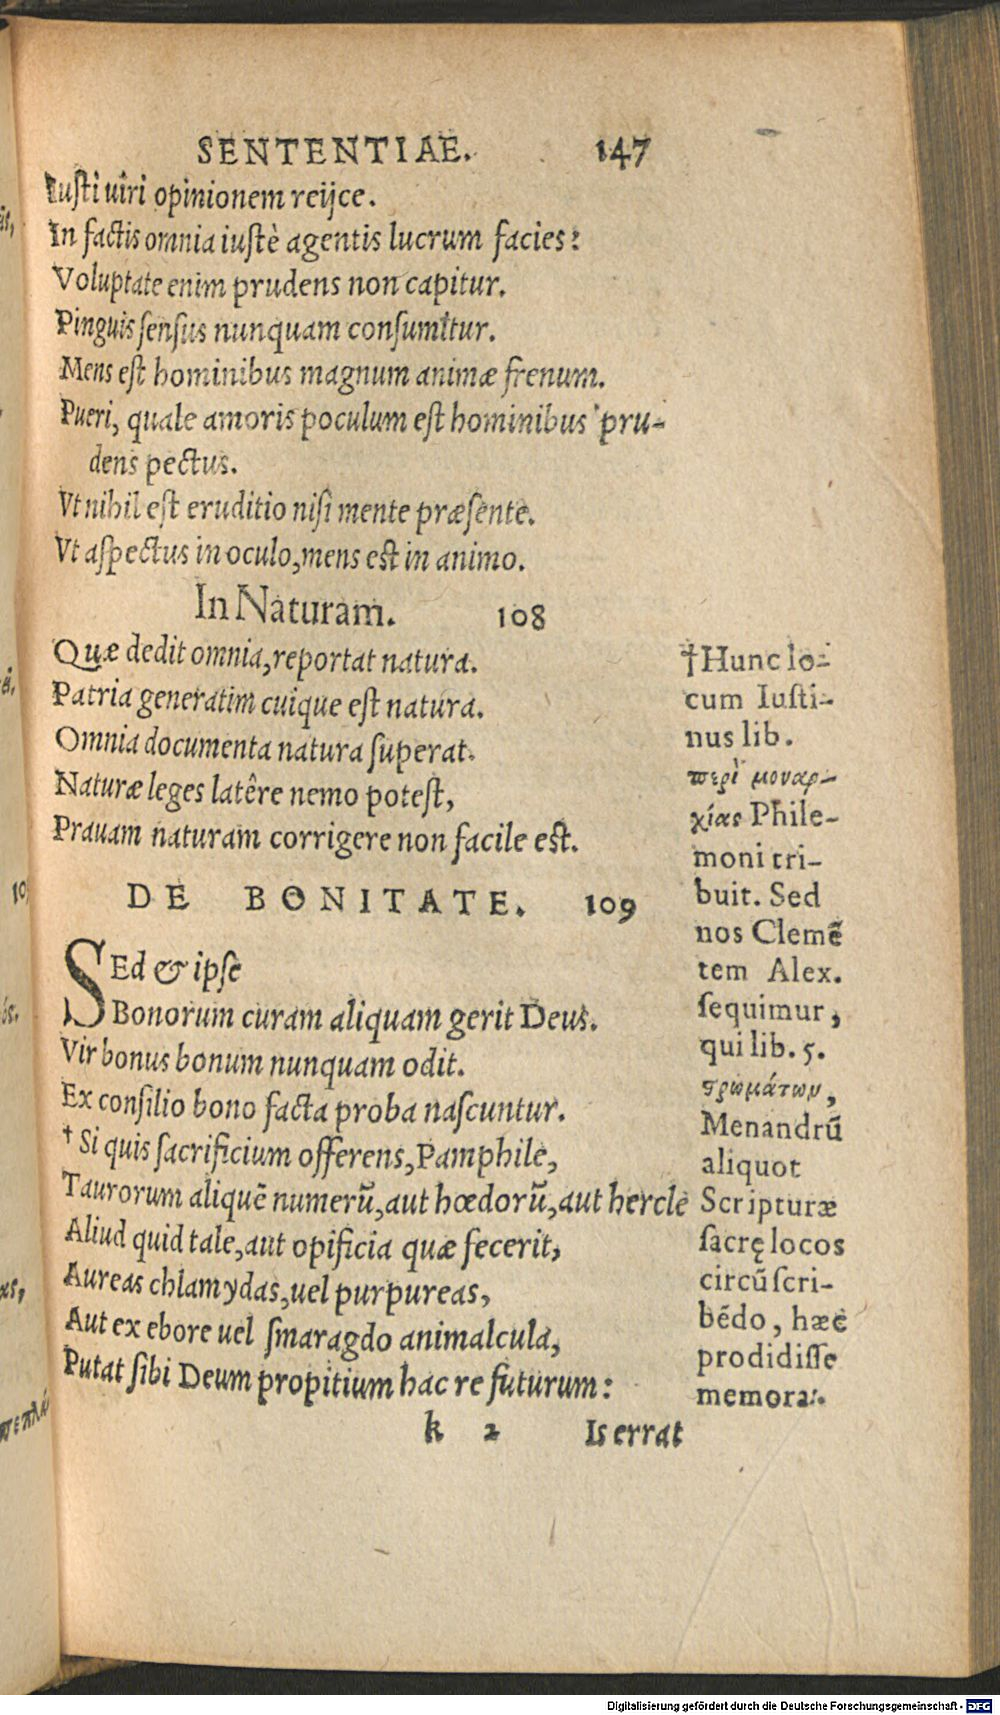 SENTENTIAE. 147
Iusti uiri opinionem reijce.
In factis omnia iustè agentis lucrum facies:
Voluptate enim prudens non capitur.
Pinguis sensus nunquam consumitur.
Mens est hominibus magnum animæ frenum.
Pueri, quale amoris poculum est hominibus pru-
dens pectus.
Vt nihil est eruditio nisi mente præsente.
Vt aspectus in oculo, mens est in animo.
In Naturam. 108
Quæ dedit omnia, reportat natura.
Patria generatim cuique est natura.
Omnia documenta natura superat.
Naturæ leges latêre nemo potest,
Prauam naturam corrigere non facile est.
DE BONITATE. 109
SEd & ipse
Bonorum curam aliquam gerit Deus.
Vir bonus bonum nunquam odit.
Ex consilio bono facta proba nascuntur.
† Si quis sacrificium offerens, Pamphile,
Taurorum aliquē numerū, aut hœdorū, aut hercle
Aliud quid tale, aut opificia quæ fecerit,
Aureas chlamydas, uel purpureas,
Aut ex ebore uel smaragdo animalcula,
Putat sibi Deum propitium hac re futurum:
k 2 Is errat
† Hunc lo-
cum Iusti-
nus lib.
περὶ μοναρ-
χίας Phile-
moni tri-
buit. Sed
nos Clemē
tem Alex.
sequimur,
qui lib. 5.
ϛρωμάτων,
Menandrū
aliquot
Scripturæ
sacrę locos
circū scri-
bēdo, hæc
prodidisse
memorat.
Digitalisierung gefördert durch die Deutsche Forschungsgemeinschaft - DFG